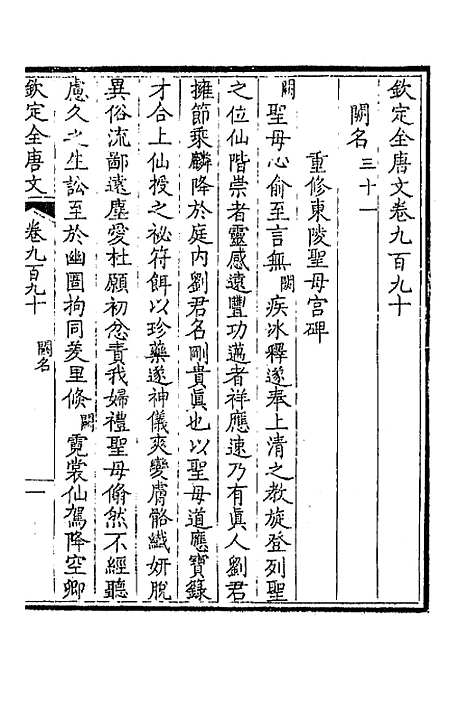 欽定全唐文卷九百九十
闕名三十一
重修東陵聖母宫碑
闕聖母心俞至言無闕疾冰釋遂奉上清之教旋登列聖
之位仙階崇者靈感遠豐功邁者祥應速乃有眞人劉君
擁節乘麟降於庭内劉君名剛貴眞也以聖母道應寶錄
才合上仙授之祕符餌以珍藥遂神儀爽變膚骼纖妍脫
異俗流鄙遠塵愛杜願初忿責我婦禮聖母翛然不經聽
慮久之生訟至於幽圄拘同羑里倐闕霓裳仙駕降空卿
欽定全唐文 卷九百九十 闕名 一